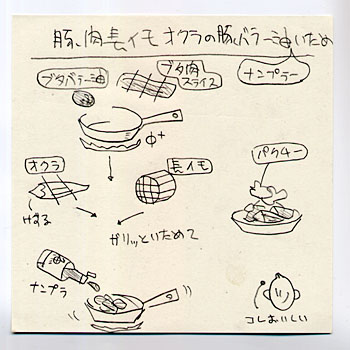 豚肉長イモオクラの豚バラ油いため
ナンプラー
ブタバラ油
ブタ肉
スライス
オクラ
けずる
長イモ
パクチー
ガリッといためて
ナンプラ
コレおいしい